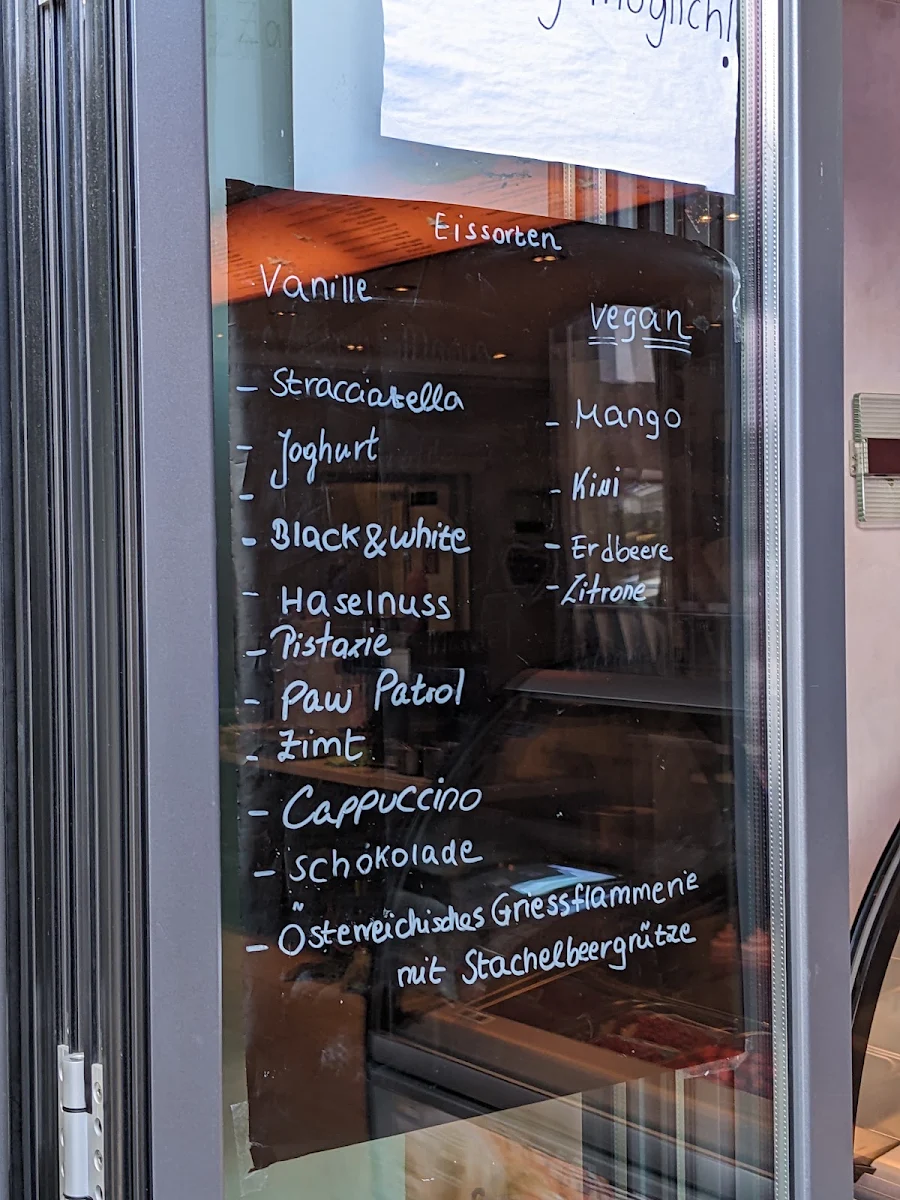 möglich!
Eissorten
Vanille
- Stracciatella
- Joghurt
-
- Black & white
- Haselnuss
- Pistazie
- Paw Patrol
- Zimt
- Cappuccino
- Schokolade
- Österreichisches Griessflammerie
mit Stachelbeergrütze
vegan
- Mango
- Kiwi
- Erdbeere
- Zitrone